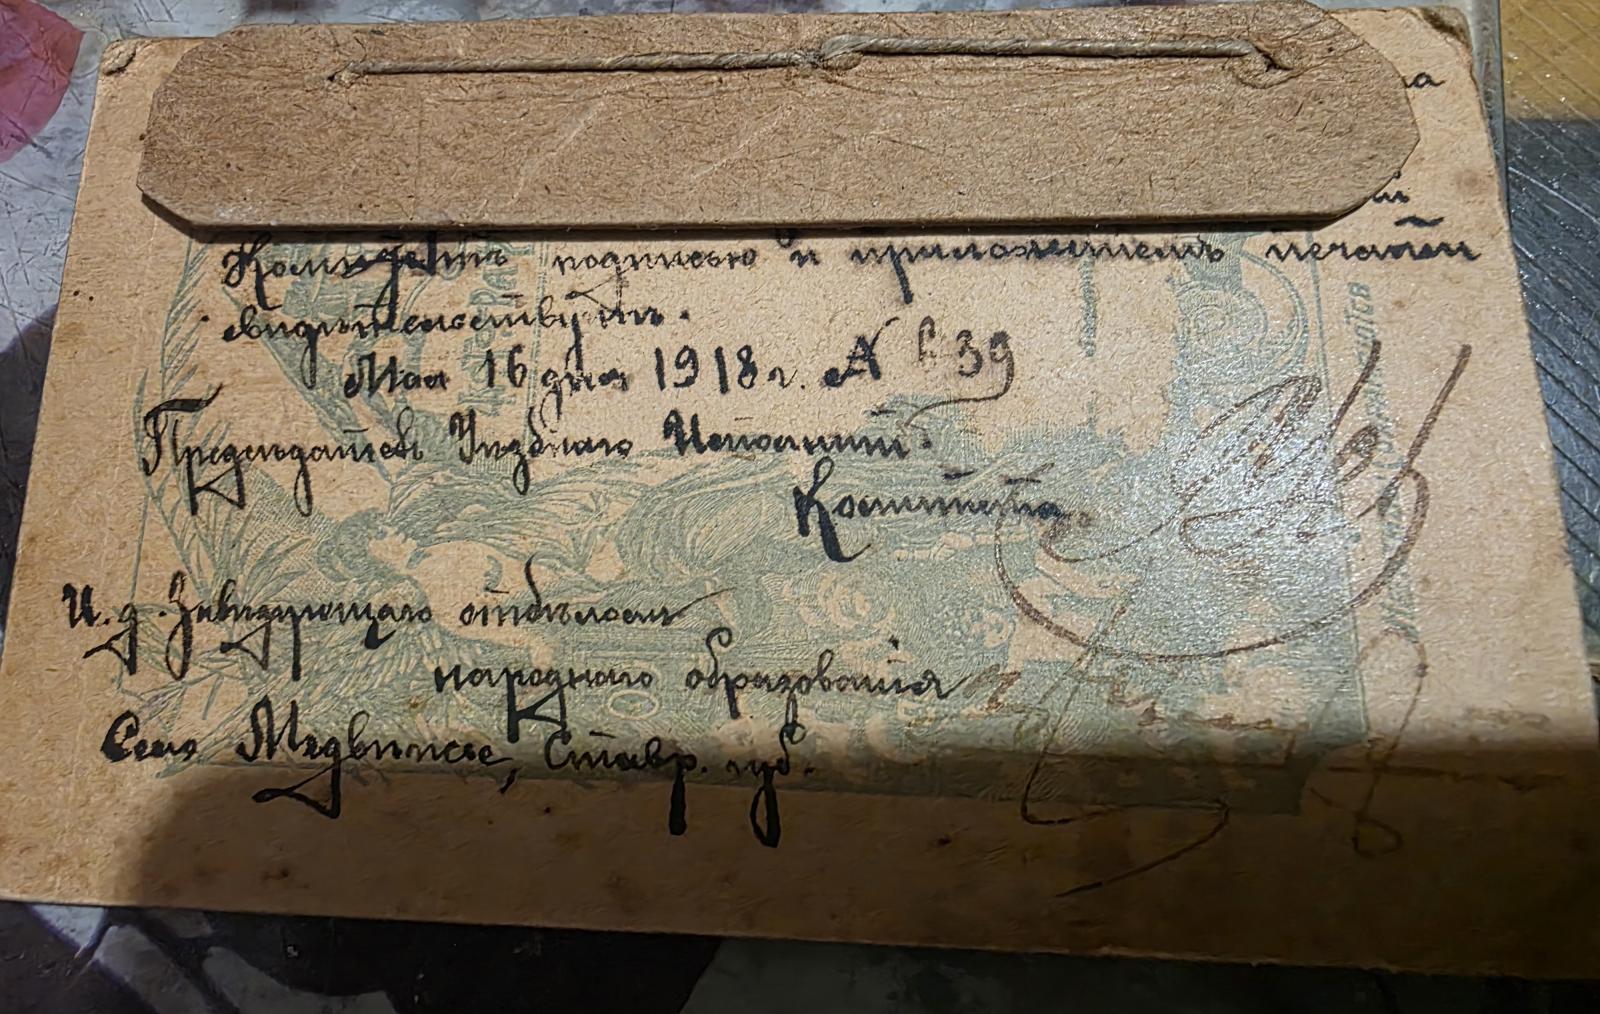 Комитетъ подписью и приложеніемъ печати
свидѣтельствуетъ.
Мая 16 дня 1918 г. № 639
Предсѣдатель Уѣзднаго Исполнит.
Комитета
И. д. Завѣдующаго отдѣломъ
народнаго образованія
Село Медвѣжье, Ставр. губ.